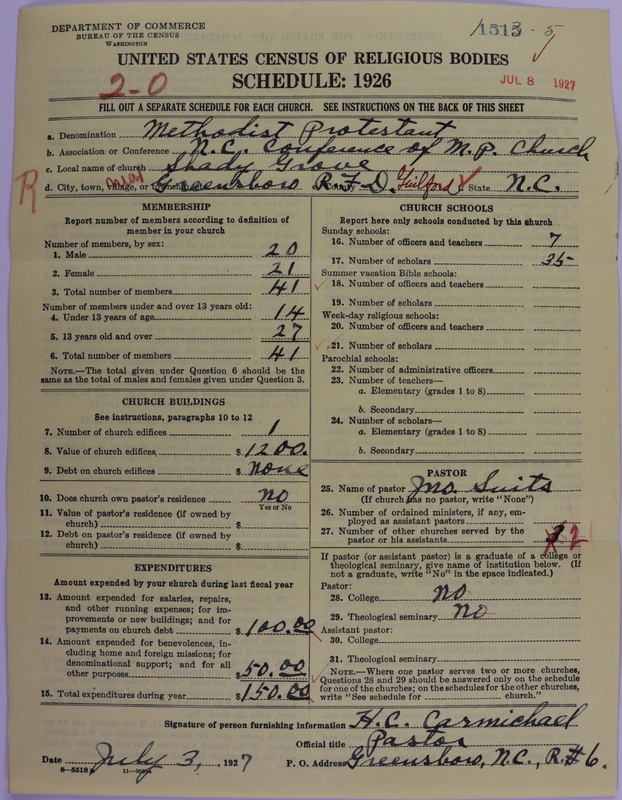 DEPARTMENT OF COMMERCE
BUREAU OF THE CENSUS
WASHINGTON
1513 - 5
UNITED STATES CENSUS OF RELIGIOUS BODIES
SCHEDULE: 1926
2-0
JUL 8 1927
FILL OUT A SEPARATE SCHEDULE FOR EACH CHURCH. SEE INSTRUCTIONS ON THE BACK OF THIS SHEET
a. Denomination Methodist Protestant
b. Association or Conference N.C. Conference of M.P. Church
c. Local name of church Shady Grove
R
d. City, town, village, or Greensboro R.F.D. County Guilford State N.C.
MEMBERSHIP
Report number of members according to definition of
member in your church
Number of members, by sex:
1. Male 20
2. Female 21
3. Total number of members 41
Number of members under and over 13 years old:
4. Under 13 years of age 14
5. 13 years old and over 27
6. Total number of members 41
NOTE.—The total given under Question 6 should be the
same as the total of males and females given under Question 3.
CHURCH BUILDINGS
See instructions, paragraphs 10 to 12
7. Number of church edifices 1
8. Value of church edifices $ 1200.
9. Debt on church edifices $ None
10. Does church own pastor's residence No
Yes or No
11. Value of pastor's residence (if owned by
church) $
12. Debt on pastor's residence (if owned by
church) $
EXPENDITURES
Amount expended by your church during last fiscal year
13. Amount expended for salaries, repairs,
and other running expenses; for im-
provements or new buildings; and for
payments on church debt $ 100.00
14. Amount expended for benevolences, in-
cluding home and foreign missions; for
denominational support; and for all
other purposes $ 50.00
15. Total expenditures during year $ 150.00
CHURCH SCHOOLS
Report here only schools conducted by this church
Sunday schools:
16. Number of officers and teachers 7
17. Number of scholars 35
Summer vacation Bible schools:
18. Number of officers and teachers
19. Number of scholars
Week-day religious schools:
20. Number of officers and teachers
21. Number of scholars
Parochial schools:
22. Number of administrative officers
23. Number of teachers—
a. Elementary (grades 1 to 8)
b. Secondary
24. Number of scholars—
a. Elementary (grades 1 to 8)
b. Secondary
PASTOR
25. Name of pastor Jno. Suits
(If church has no pastor, write "None")
26. Number of ordained ministers, if any, em-
ployed as assistant pastors
27. Number of other churches served by the
pastor or his assistants 2
If pastor (or assistant pastor) is a graduate of a college or
theological seminary, give name of institution below. (If
not a graduate, write "No" in the space indicated.)
Pastor:
28. College No
29. Theological seminary No
Assistant pastor:
30. College
31. Theological seminary
NOTE.—Where one pastor serves two or more churches,
Questions 28 and 29 should be answered only on the schedule
for one of the churches; on the schedules for the other churches,
write "See schedule for church."
Signature of person furnishing information H.C. Carmichael
Official title Pastor
Date July 3, 1927 P. O. Address Greensboro, N.C., R#6.
8-5518